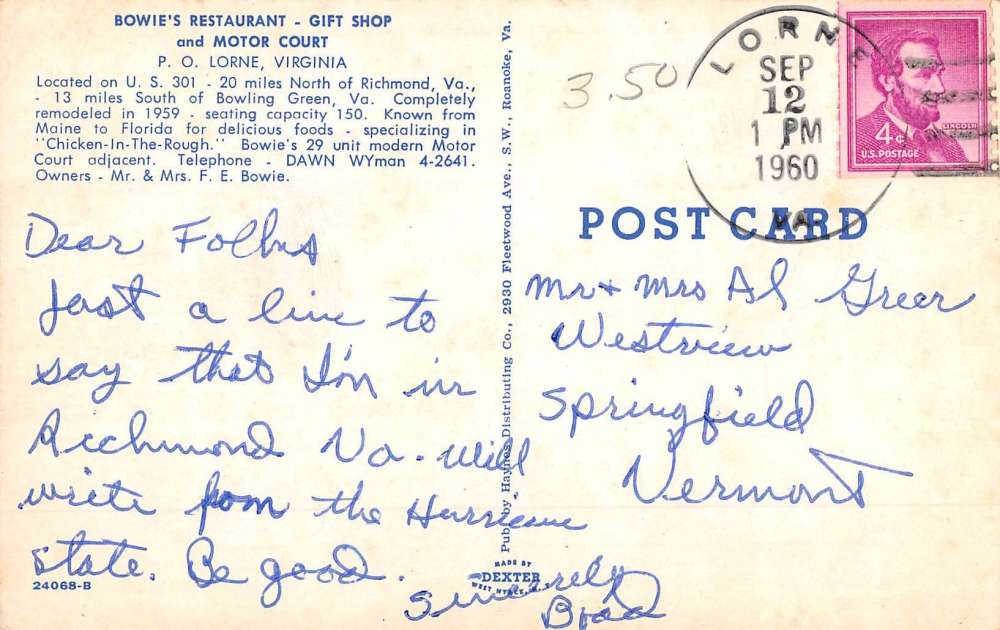 BOWIE'S RESTAURANT - GIFT SHOP
and MOTOR COURT
P. O. LORNE, VIRGINIA
Located on U. S. 301 - 20 miles North of Richmond, Va.,
- 13 miles South of Bowling Green, Va. Completely
remodeled in 1959 - seating capacity 150. Known from
Maine to Florida for delicious foods - specializing in
"Chicken-In-The-Rough." Bowie's 29 unit modern Motor
Court adjacent. Telephone - DAWN WYman 4-2641.
Owners - Mr. & Mrs. F. E. Bowie.
Dear Folks
Just a line to
say that I'm in
Richmond Va. Will
write from the Hurricane
state. Be good.
Sincerely
Brad
24068-B
Pub. by Haynes Distributing Co., 2930 Fleetwood Ave., S.W., Roanoke, Va.
MADE BY
DEXTER
WEST NYACK, N. Y.
3.50
LORNE
SEP
12
1 PM
1960
VA.
LINCOLN
4¢
U.S. POSTAGE
POST CARD
Mr + Mrs Al Greer
Westview
Springfield
Vermont